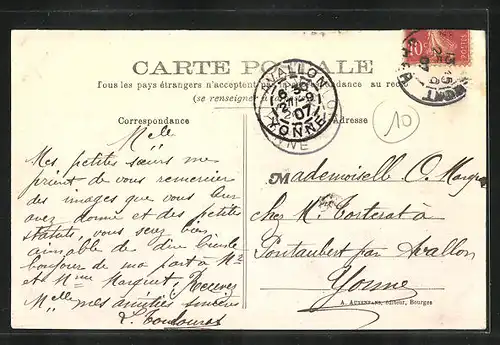 CARTE POSTALE
Tous les pays étrangers n'acceptent pas la correspondance au recto
(se renseigner à la
Correspondance
Adresse
AVALLON
YONNE
07
10
POSTES
10
Melle
Mes petites sœurs me
prient de vous remercier
des images que vous leur
avez donné et des petites
statuts, vous serez bien
aimable de dire
bonjour de ma part à Mr
et Mme Marquet; Recevez
Melle mes amitiés sincères
Mademoiselle O.
chez M. Torterat à
Pontaubert par Avallon
Yonne
A. AUXENFANS, éditeur, Bourges